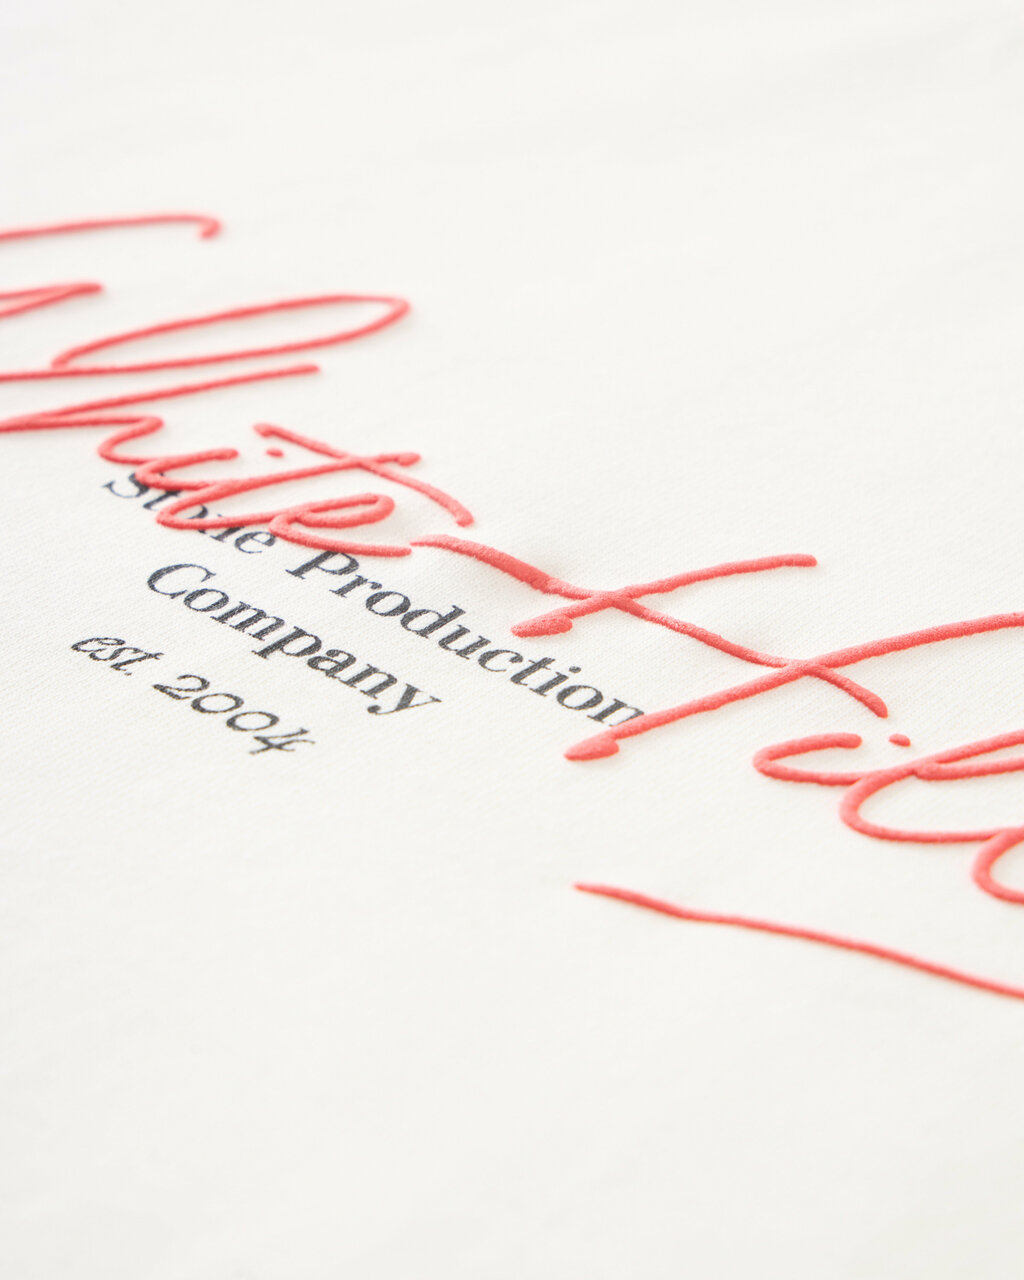 White
Stone Production
Company
est. 2004